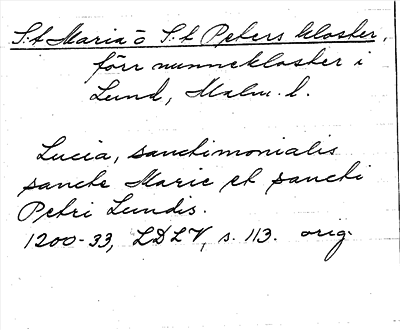 S:t Maria o S:t Peters kloster,
förr nunnekloster i
Lund, Malm. l.
Lucia, sanctimonialis
sancte Marie et sancti
Petri Lundis.
1200-33, LDLV, s. 113. orig.